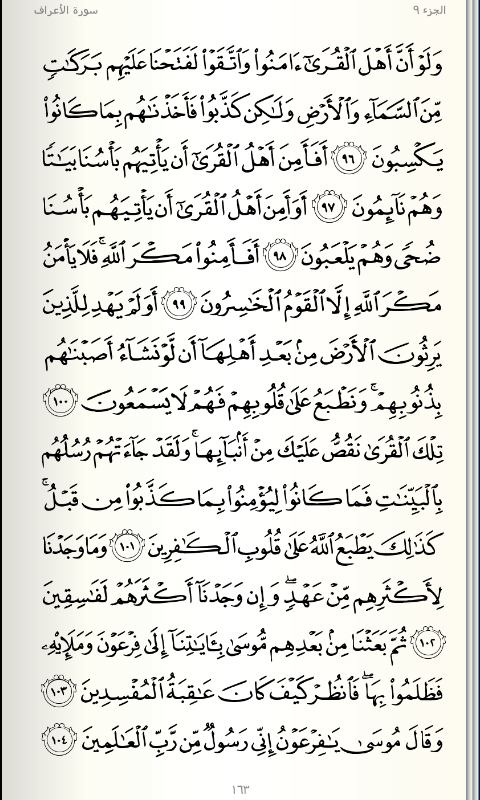 الجزء ٩
سورة الأعراف
وَلَوْ أَنَّ أَهْلَ ٱلْقُرَىٰٓ ءَامَنُوا۟ وَٱتَّقَوْا۟ لَفَتَحْنَا عَلَيْهِم بَرَكَـٰتٍ
مِّنَ ٱلسَّمَآءِ وَٱلْأَرْضِ وَلَـٰكِن كَذَّبُوا۟ فَأَخَذْنَـٰهُم بِمَا كَانُوا۟
يَكْسِبُونَ ٩٦ أَفَأَمِنَ أَهْلُ ٱلْقُرَىٰٓ أَن يَأْتِيَهُم بَأْسُنَا بَيَـٰتًا
وَهُمْ نَآئِمُونَ ٩٧ أَوَأَمِنَ أَهْلُ ٱلْقُرَىٰٓ أَن يَأْتِيَهُم بَأْسُنَا
ضُحًى وَهُمْ يَلْعَبُونَ ٩٨ أَفَأَمِنُوا۟ مَكْرَ ٱللَّهِ ۚ فَلَا يَأْمَنُ
مَكْرَ ٱللَّهِ إِلَّا ٱلْقَوْمُ ٱلْخَـٰسِرُونَ ٩٩ أَوَلَمْ يَهْدِ لِلَّذِينَ
يَرِثُونَ ٱلْأَرْضَ مِنۢ بَعْدِ أَهْلِهَآ أَن لَّوْ نَشَآءُ أَصَبْنَـٰهُم
بِذُنُوبِهِمْ ۚ وَنَطْبَعُ عَلَىٰ قُلُوبِهِمْ فَهُمْ لَا يَسْمَعُونَ ١٠٠
تِلْكَ ٱلْقُرَىٰ نَقُصُّ عَلَيْكَ مِنْ أَنۢبَآئِهَا ۚ وَلَقَدْ جَآءَتْهُمْ رُسُلُهُم
بِٱلْبَيِّنَـٰتِ فَمَا كَانُوا۟ لِيُؤْمِنُوا۟ بِمَا كَذَّبُوا۟ مِن قَبْلُ ۚ
كَذَٰلِكَ يَطْبَعُ ٱللَّهُ عَلَىٰ قُلُوبِ ٱلْكَـٰفِرِينَ ١٠١ وَمَا وَجَدْنَا
لِأَكْثَرِهِم مِّنْ عَهْدٍ ۖ وَإِن وَجَدْنَآ أَكْثَرَهُمْ لَفَـٰسِقِينَ
١٠٢ ثُمَّ بَعَثْنَا مِنۢ بَعْدِهِم مُّوسَىٰ بِـَٔايَـٰتِنَآ إِلَىٰ فِرْعَوْنَ وَمَلَإِي۟هِۦ
فَظَلَمُوا۟ بِهَا ۖ فَٱنظُرْ كَيْفَ كَانَ عَـٰقِبَةُ ٱلْمُفْسِدِينَ ١٠٣
وَقَالَ مُوسَىٰ يَـٰفِرْعَوْنُ إِنِّى رَسُولٌ مِّن رَّبِّ ٱلْعَـٰلَمِينَ ١٠٤
١٦٣